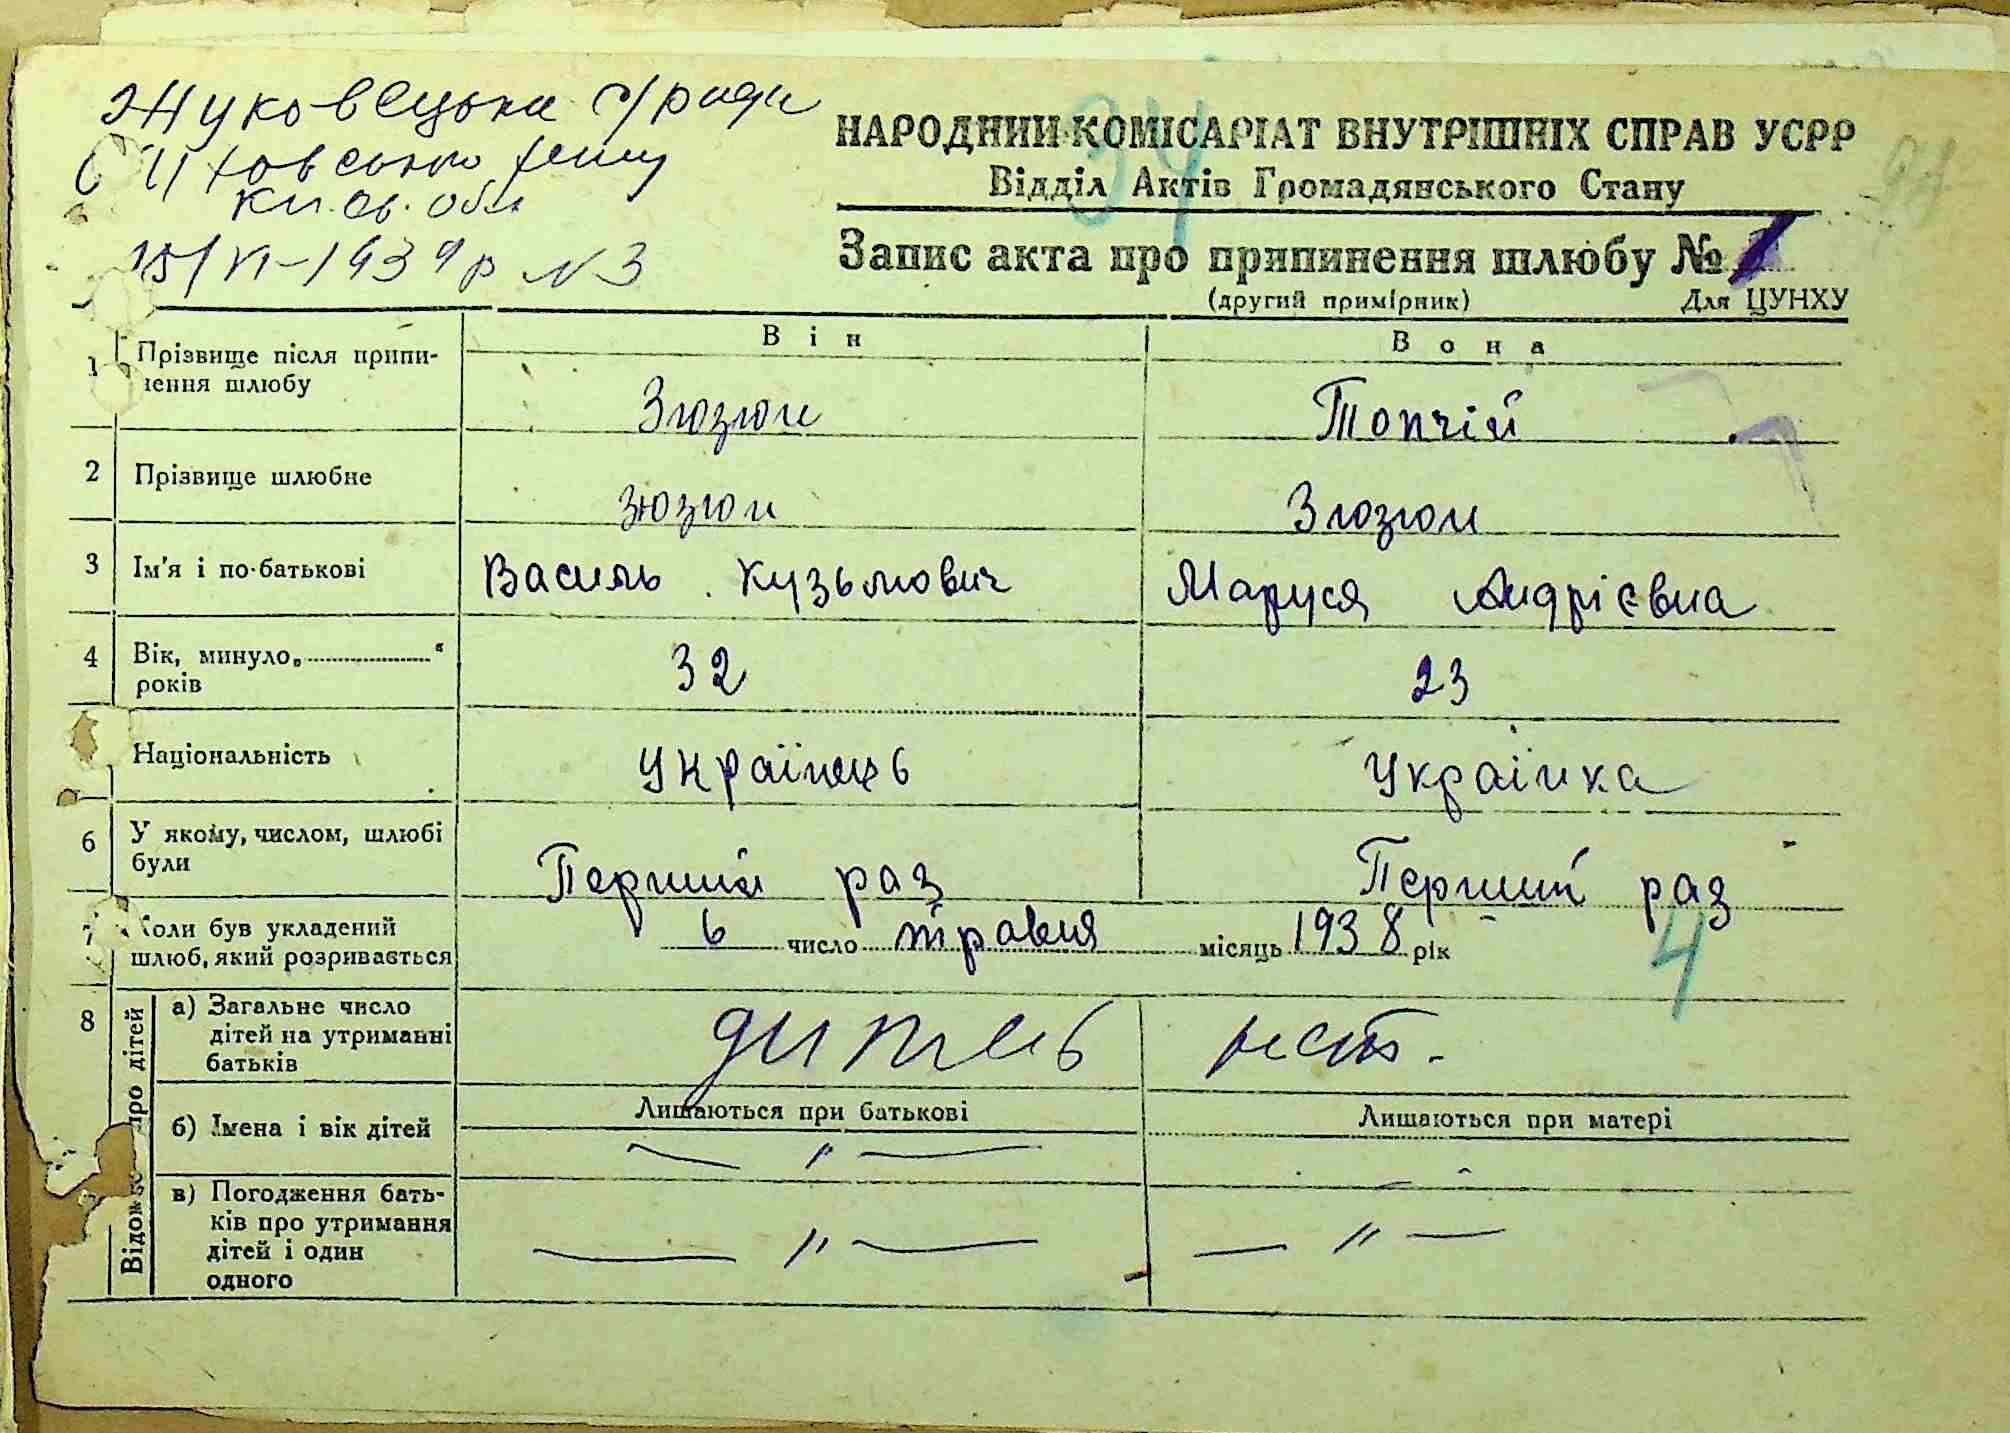 Жуковецька с/рада
Обуховського р-ну
Київ. обл
15/VI-1939 р N 3
34
98
НАРОДНИЙ КОМІСАРІАТ ВНУТРІШНІХ СПРАВ УСРР
Відділ Актів Громадянського Стану
Запис акта про припинення шлюбу №
(другий примірник) Для ЦУНХУ
Він Вона
1 Прізвище після припи-
нення шлюбу
Зюзюн Топчій
2 Прізвище шлюбне Зюзюн Зюзюн
3 Ім'я і по-батькові Василь Кузьмович Маруся Андрієвна
4 Вік, минуло „ “
років
32 23
Національність Українець Українка
6 У якому, числом, шлюбі
були
Перший раз Перший раз
7 Коли був укладений
шлюб, який розривається
6 число травня місяць 1938 рік
4
8 Відомо про дітей
а) Загальне число
дітей на утриманні
батьків
дитей нет.
б) Імена і вік дітей
Лишаються при батькові Лишаються при матері
— " —
в) Погодження бать-
ків про утримання
дітей і один
одного
— " — — " —